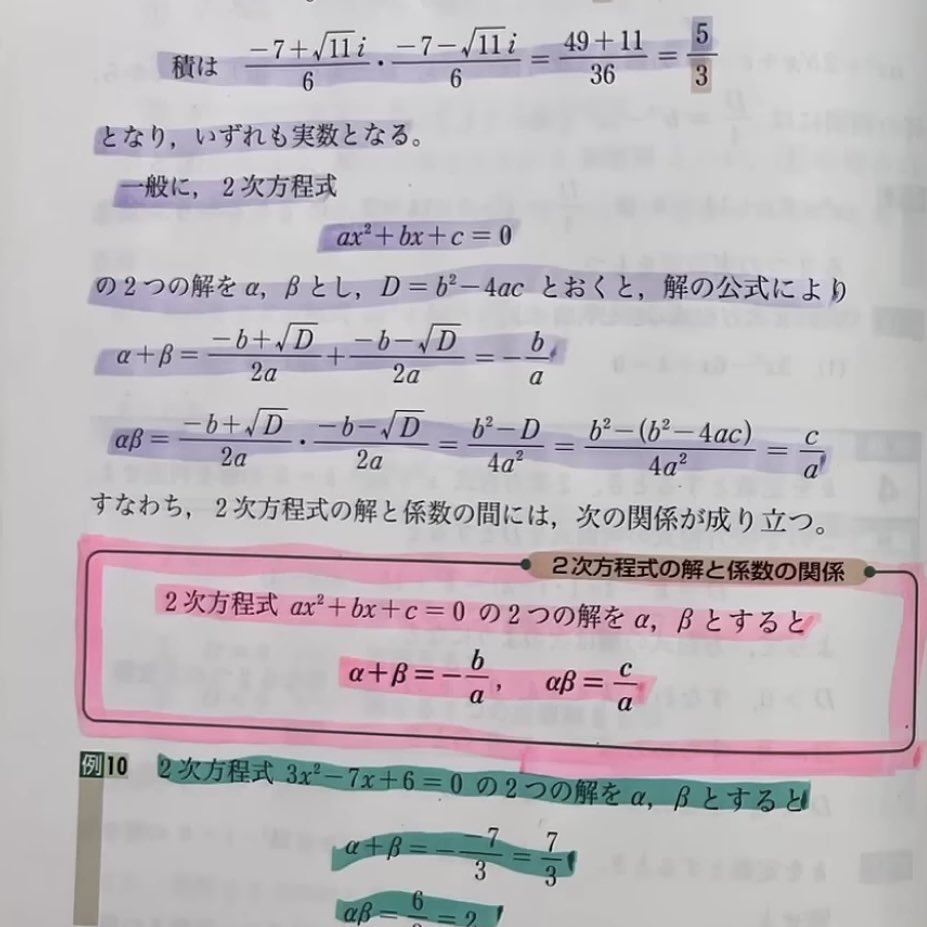 積は (−7+√11 i)/6 ・ (−7−√11 i)/6 = (49+11)/36 = 5/3
となり，いずれも実数となる。
一般に，2次方程式
ax²+bx+c=0
の2つの解をα，βとし，D=b²−4ac とおくと，解の公式により
α+β=(−b+√D)/2a+(−b−√D)/2a=−b/a
αβ=(−b+√D)/2a・(−b−√D)/2a=(b²−D)/4a²=(b²−(b²−4ac))/4a²=c/a
すなわち，2次方程式の解と係数の間には，次の関係が成り立つ。
2次方程式の解と係数の関係
2次方程式 ax²+bx+c=0 の2つの解をα，βとすると
α+β=−b/a， αβ=c/a
例10 2次方程式 3x²−7x+6=0 の2つの解をα，βとすると
α+β=−(−7)/3=7/3
αβ=6/3=2